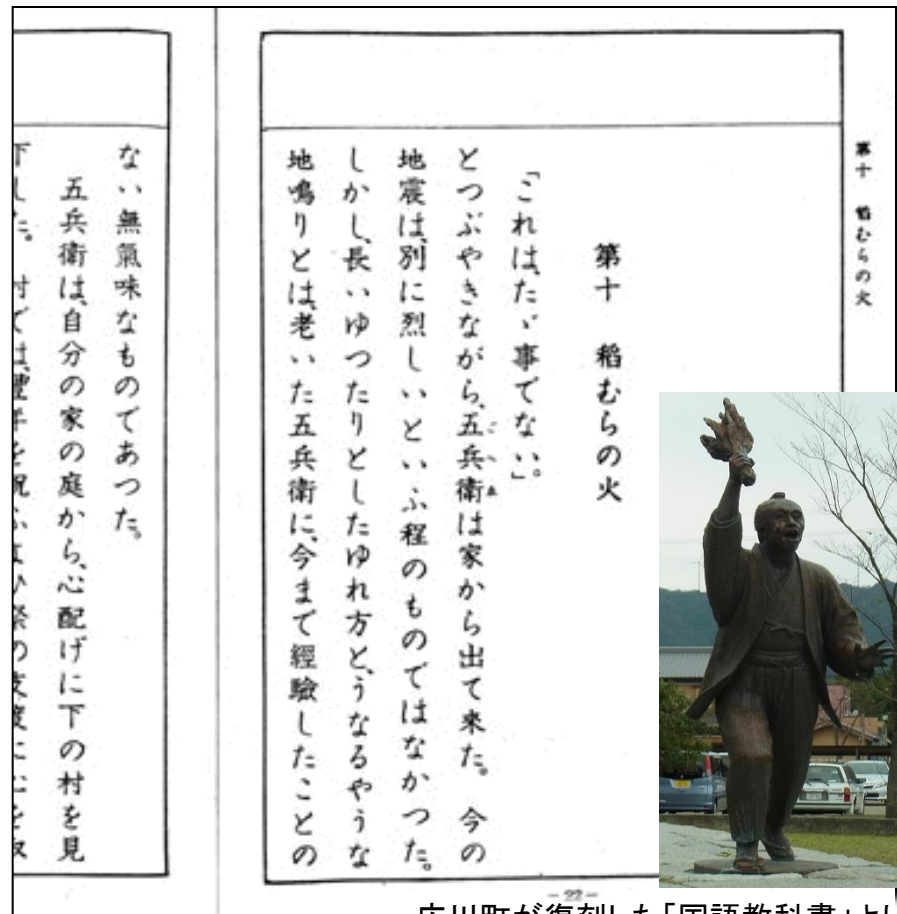 第十 稻むらの火
第十 稻むらの火
「これは、たゞ事でない」。
とつぶやきながら、五兵衞は家から出て來た。 今の
地震は、別に烈しいといふ程のものではなかつた。
しかし、長いゆつたりとしたゆれ方と、うなるやうな
地鳴りとは、老いた五兵衞に、今まで經驗したことの
-22-
ない無氣味なものであつた。
五兵衞は、自分の家の庭から、心配げに下の村を見
下した。 村では、豐年を祝ふよひ祭の支度に心を取